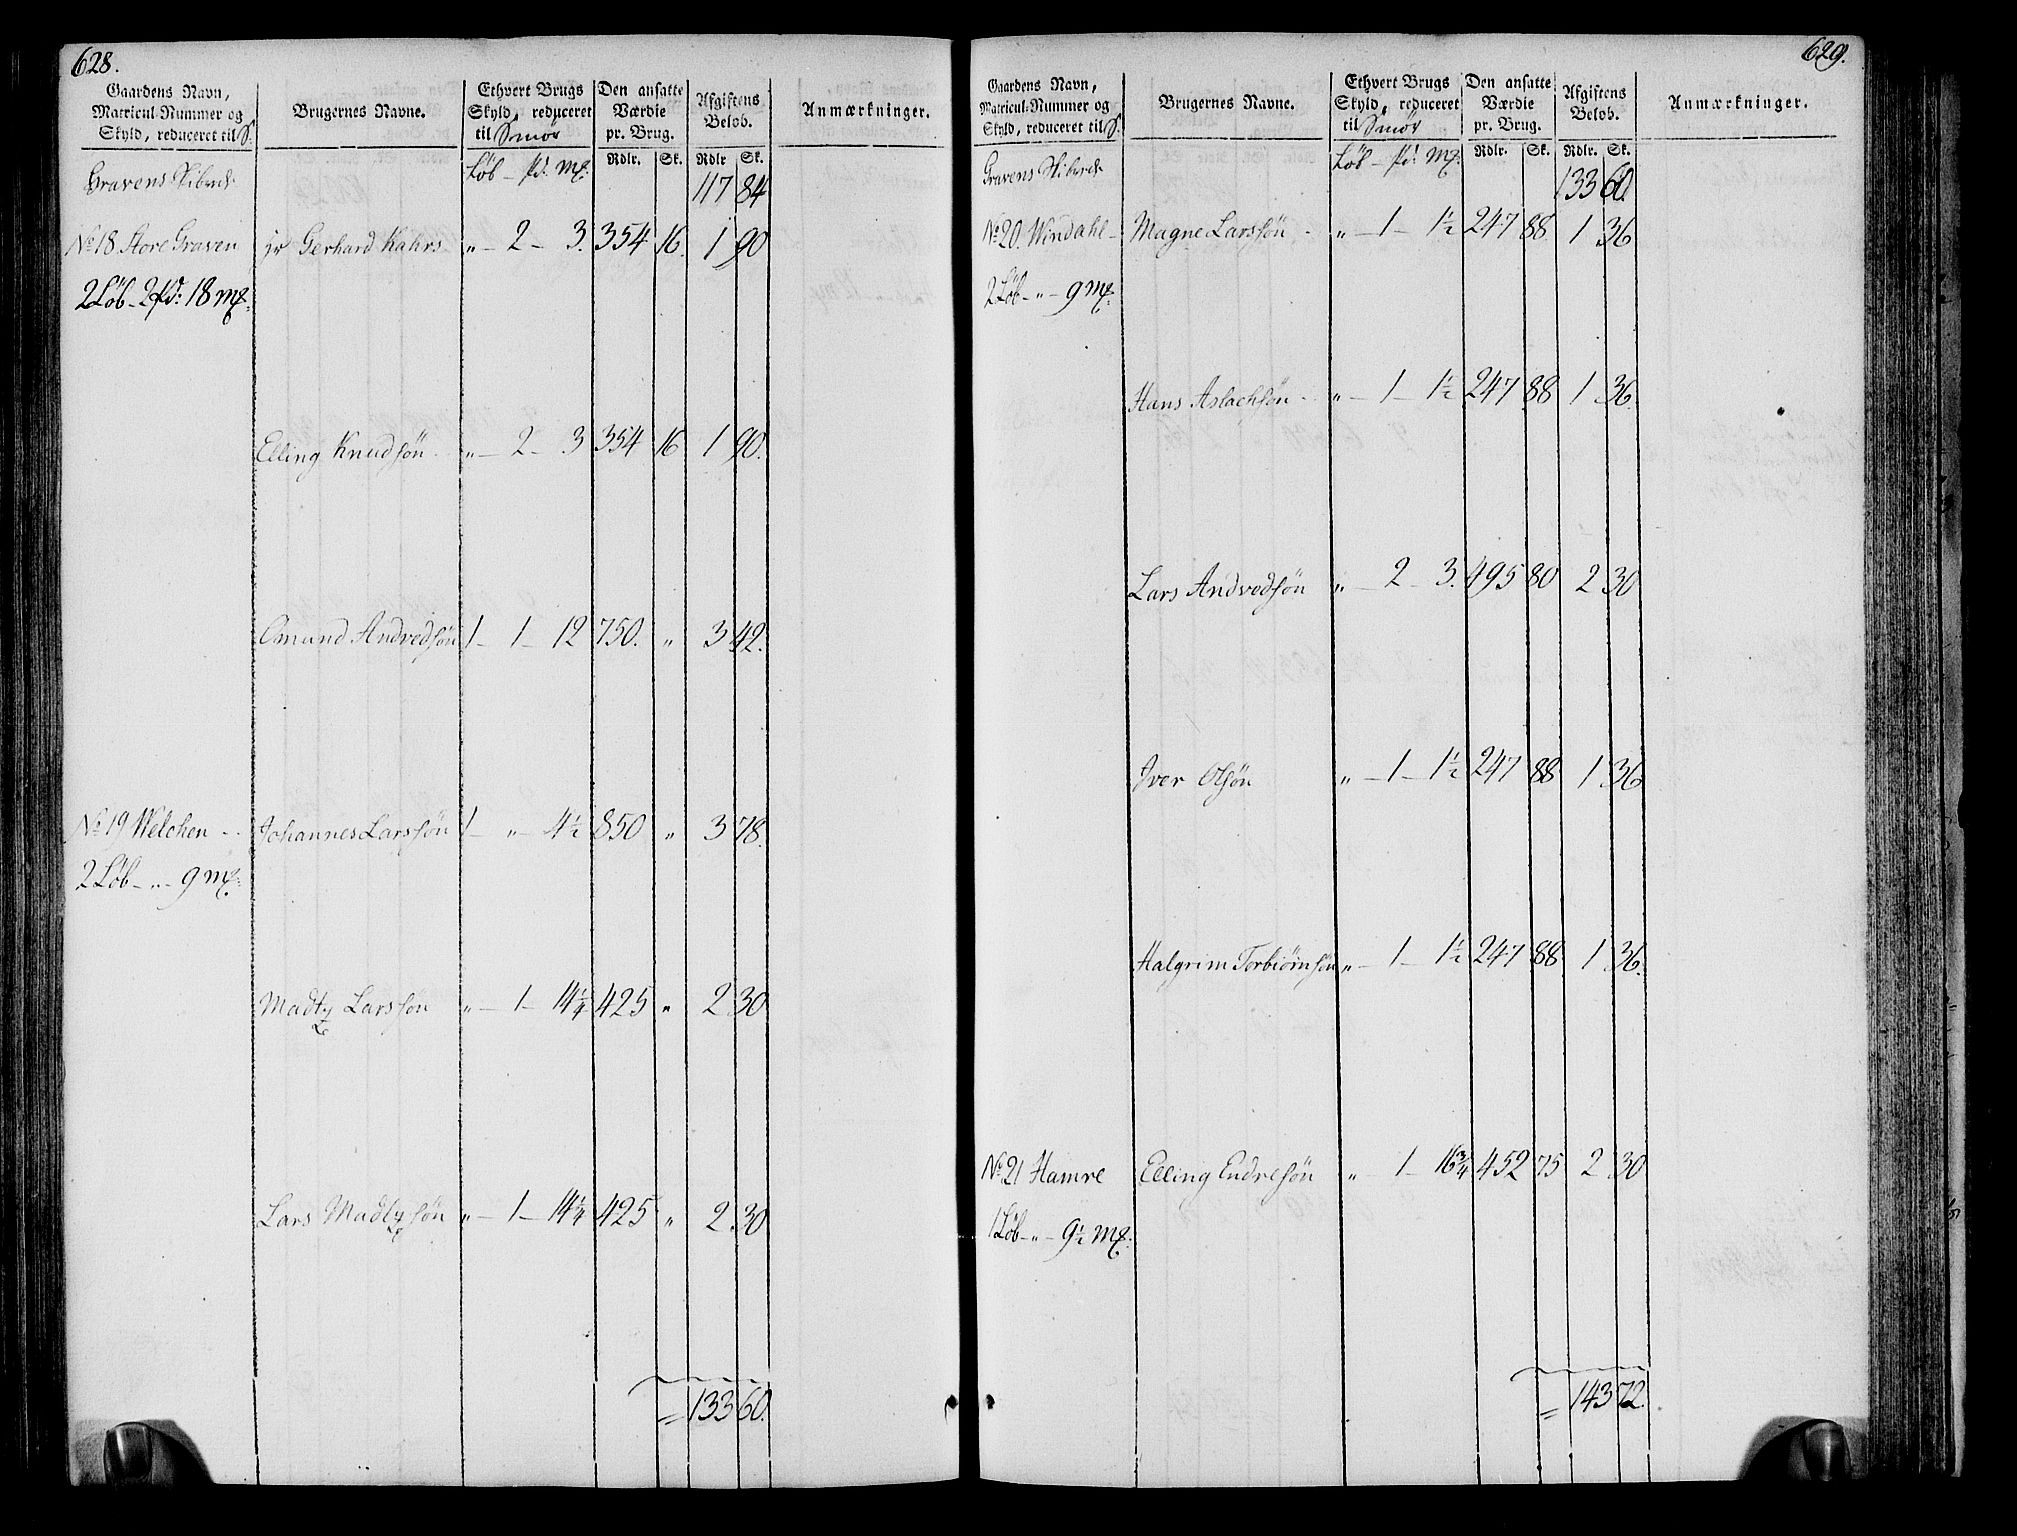 628.
Gaardens Navn, Matricul-Nummer og Skyld, reduceret til S. | Brugernes Navne. | Ethvert Brugs Skyld, reduceret til Smør | Den ansatte Værdie pr. Brug. | Afgiftens Beløb. | Anmærkninger.
Løb – Pd. Mk. | Rdlr. | Sk. | Rdlr | Sk.
Gravens Skibrede | 117 | 84
No 18 Store Graven | Gerhard Kahrs | „ – 2 – 3. | 354 | 16. | 1 | 90
2 Løb – 2 Pd. 18 Mk.
Elling Knudsøn | „ – 2 – 3 | 354 | 16 | 1 | 90.
Omund Andvedsøn | 1 – 1 – 12 | 750. | „ | 3 | 42.
No 19 Welchen | Johannes Larssøn | 1 – „ – 4½ | 850 | „ | 3 | 78.
2 Løb – „ – 9 Mk.
Madty Larssøn | „ – 1 – 14¼ | 425 | „ | 2 | 30
Lars Madtysøn | „ – 1 – 14¼ | 425 | „ | 2 | 30
= 133 | 60.
629.
Gaardens Navn, Matricul-Nummer og Skyld, reduceret til S. | Brugernes Navne. | Ethvert Brugs Skyld, reduceret til Smør | Den ansatte Værdie pr. Brug. | Afgiftens Beløb. | Anmærkninger.
Løb – Pd. Mk. | Rdlr. | Sk. | Rdlr. | Sk.
Gravens Skibrede | 133 | 60.
No 20. Windahl | Magne Larssøn | „ – 1 – 1½ | 247 | 88. | 1 | 36
2 Løb – „ – 9 Mk.
Hans Aslachsøn | „ – 1 – 1½ | 247 | 88 | 1 | 36.
Lars Andvedsøn | „ – 2 – 3. | 495 | 80 | 2 | 30
Iver Olsøn | „ – 1 – 1½ | 247 | 88 | 1 | 36
Halgrim Torbiørnsøn | „ – 1 – 1½ | 247 | 88 | 1 | 36.
No 21 Hamre | Elling Endresøn | „ – 1 – 16¾ | 452 | 75 | 2 | 30
1 Løb – „ – 9½ Mk.
= 143 | 72.